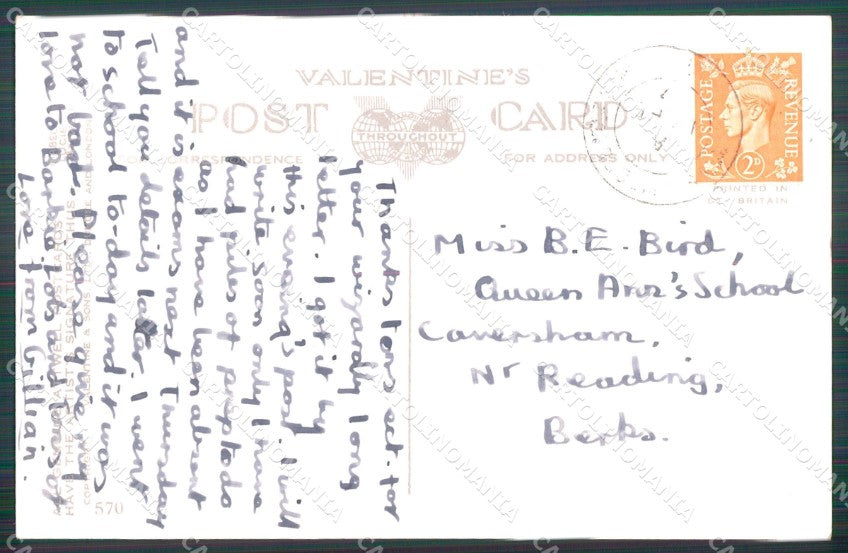 VALENTINE'S
POST CARD
THROUGHOUT
CORRESPONDENCE
FOR ADDRESS ONLY
POSTAGE
REVENUE
2D
PRINTED IN
GT BRITAIN
Miss B.E. Bird,
Queen Ann's School
Caversham,
Nr Reading,
Berks.
Thanks tons ect. for
your wizardly long
letter. I got it by
this evening's post. I will
write soon only I have
had piles of prep to do
as I have been absent
and it is exams next Thursday
Tell you details later. I went
to school to-day and it was
not bad. Please give my
love to Barbie Jobs and tons of
Love from Gillian.
HAVE THE ARTIST'S SIGNATURE THUS
VALENTINE & SONS
AND LONDON
570
CARTOLINOMANIA